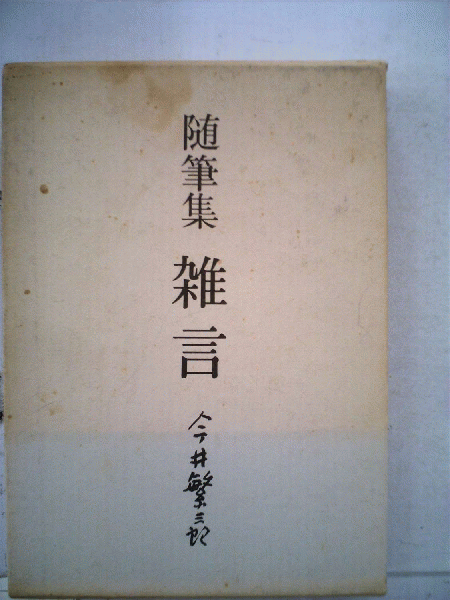 随筆集 雑言
今井繁三郎